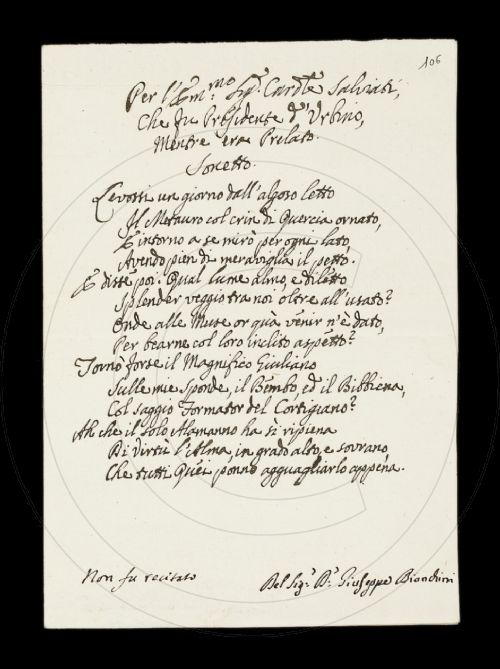 106
Per l'Em.mo Sig.r Card.le Salviati,
Che fu Presidente d'Urbino,
Mentre era Prelato.
Sonetto.
Levossi un giorno dall'algoso letto
Il Metauro col crin di Quercia ornato,
E intorno a se mirò per ogni lato,
Avendo pien di meraviglia il petto.
E disse poi: Qual lume almo, e diletto
Splender veggio tra noi oltre all'usato?
Onde alle Muse or quà venir n'è dato,
Per bearne col loro inclito aspetto?
Tornò forse il Magnifico Giuliano
Sulle mie sponde, il Bembo, ed il Bibbiena,
Col saggio Formator del Cortigiano?
Ah che il solo Alamanno ha sì ripiena
Di Virtù l'Alma, in grado alto, e sovrano
Che tutti Quei ponno agguagliarlo appena.
Non fu recitato
Del Sig.r D.r Giuseppe Biondini